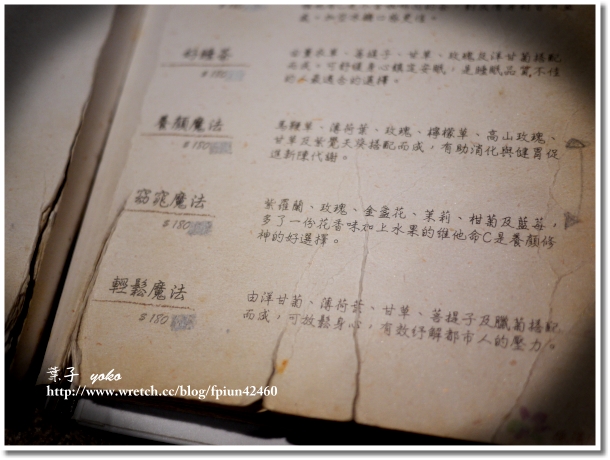 成。加蜜半糖口感更佳。
好睡茶
$180
由薰衣草、菩提子、甘草、玫瑰及洋甘菊搭配
而成。可舒緩身心鎮定安眠，是睡眠品質不佳
的人最適合的選擇。
養顏魔法
$180
馬鞭草、薄荷葉、玫瑰、檸檬草、高山玫瑰、
甘草及紫覺天葵搭配而成，有助消化與健胃促
進新陳代謝。
窈窕魔法
$180
紫羅蘭、玫瑰、金盞花、茉莉、柑菊及藍莓，
多了一份花香味加上水果的維他命C是養顏修
神的好選擇。
輕鬆魔法
$180
由洋甘菊、薄荷葉、甘草、菩提子及臘菊搭配
而成，可放鬆身心，有效紓解都市人的壓力。
葉子 yoko
http://www.wretch.cc/blog/fpiun42460